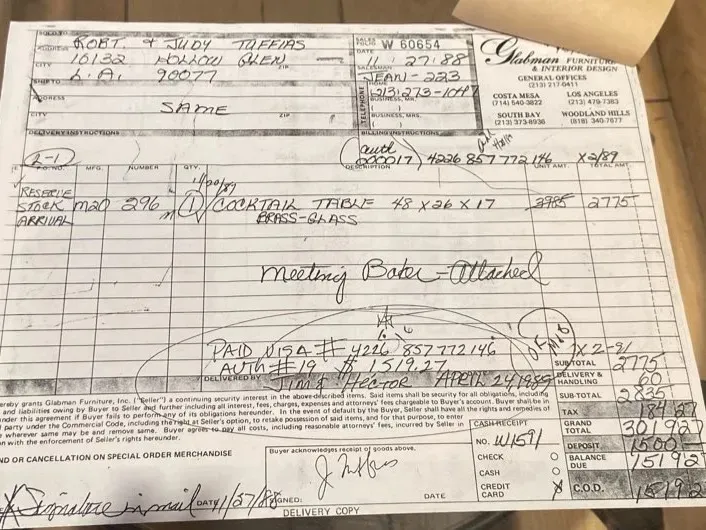 SOLD TO ROBT. & JUDY TUFFIAS
ADDRESS 10132 HOLLOW GLEN
CITY L.A. 90077 ZIP
SHIP TO
ADDRESS SAME
CITY ZIP
DELIVERY INSTRUCTIONS
SALES FOLIO W 60654
DATE 11-27-88
SALESMAN JEAN-223
TELEPHONE
HOME (213) 273-1047
BUSINESS, MR.
( )
BUSINESS, MRS.
( )
BILLING INSTRUCTIONS
Glabman FURNITURE
& INTERIOR DESIGN
GENERAL OFFICES
(213) 217-0411
COSTA MESA LOS ANGELES
(714) 540-3822 (213) 479-7383
SOUTH BAY WOODLAND HILLS
(213) 373-8936 (818) 340-7677
auth 000017) 4226 857 772 146 X2/89
L-1
P.O. NO. MFG. NUMBER QTY. DESCRIPTION UNIT AMT. TOTAL AMT.
RESERVE
STOCK M20 296 1 COCKTAIL TABLE 48 X 26 X 17 3985 2775
ARRIVAL BRASS-GLASS
Meeting Baker - Attached
PAID VISA # 4226 857 772 146 X 2-91
AUTH #19 $ 1519.27
SUB TOTAL 2775
DELIVERED BY Jim & Hector APRIL 24 1989
DELIVERY & HANDLING 60
SUB-TOTAL 2835
TAX 184 27
GRAND TOTAL 3019 27
DEPOSIT 1500 —
BALANCE DUE 1519 27
C.O.D. 1519 2
ereby grants Glabman Furniture, Inc. ("Seller") a continuing security interest in the above-described items. Said items shall be security for all obligations, including
and liabilities owing by Buyer to Seller and further including all interest, fees, charges, expenses and attorneys' fees chargeable to Buyer's account. Buyer shall be in
nder this agreement if Buyer fails to perform any of its obligations hereunder. In the event of default by the Buyer, Seller shall have all the rights and remedies of
party under the Commercial Code, including the right at Seller's option, to retake possession of said items, and for that purpose, to enter
wherever same may be and remove same. Buyer agrees to pay all costs, including reasonable attorneys' fees, incurred by Seller in
on with the enforcement of Seller's rights hereunder.
CASH RECEIPT
NO. W1591
CHECK
CASH
CREDIT CARD X
ND OR CANCELLATION ON SPECIAL ORDER MERCHANDISE
Buyer acknowledges receipt of goods above.
X Signature in mail DATE 11/27/88
SIGNED: DATE
DELIVERY COPY